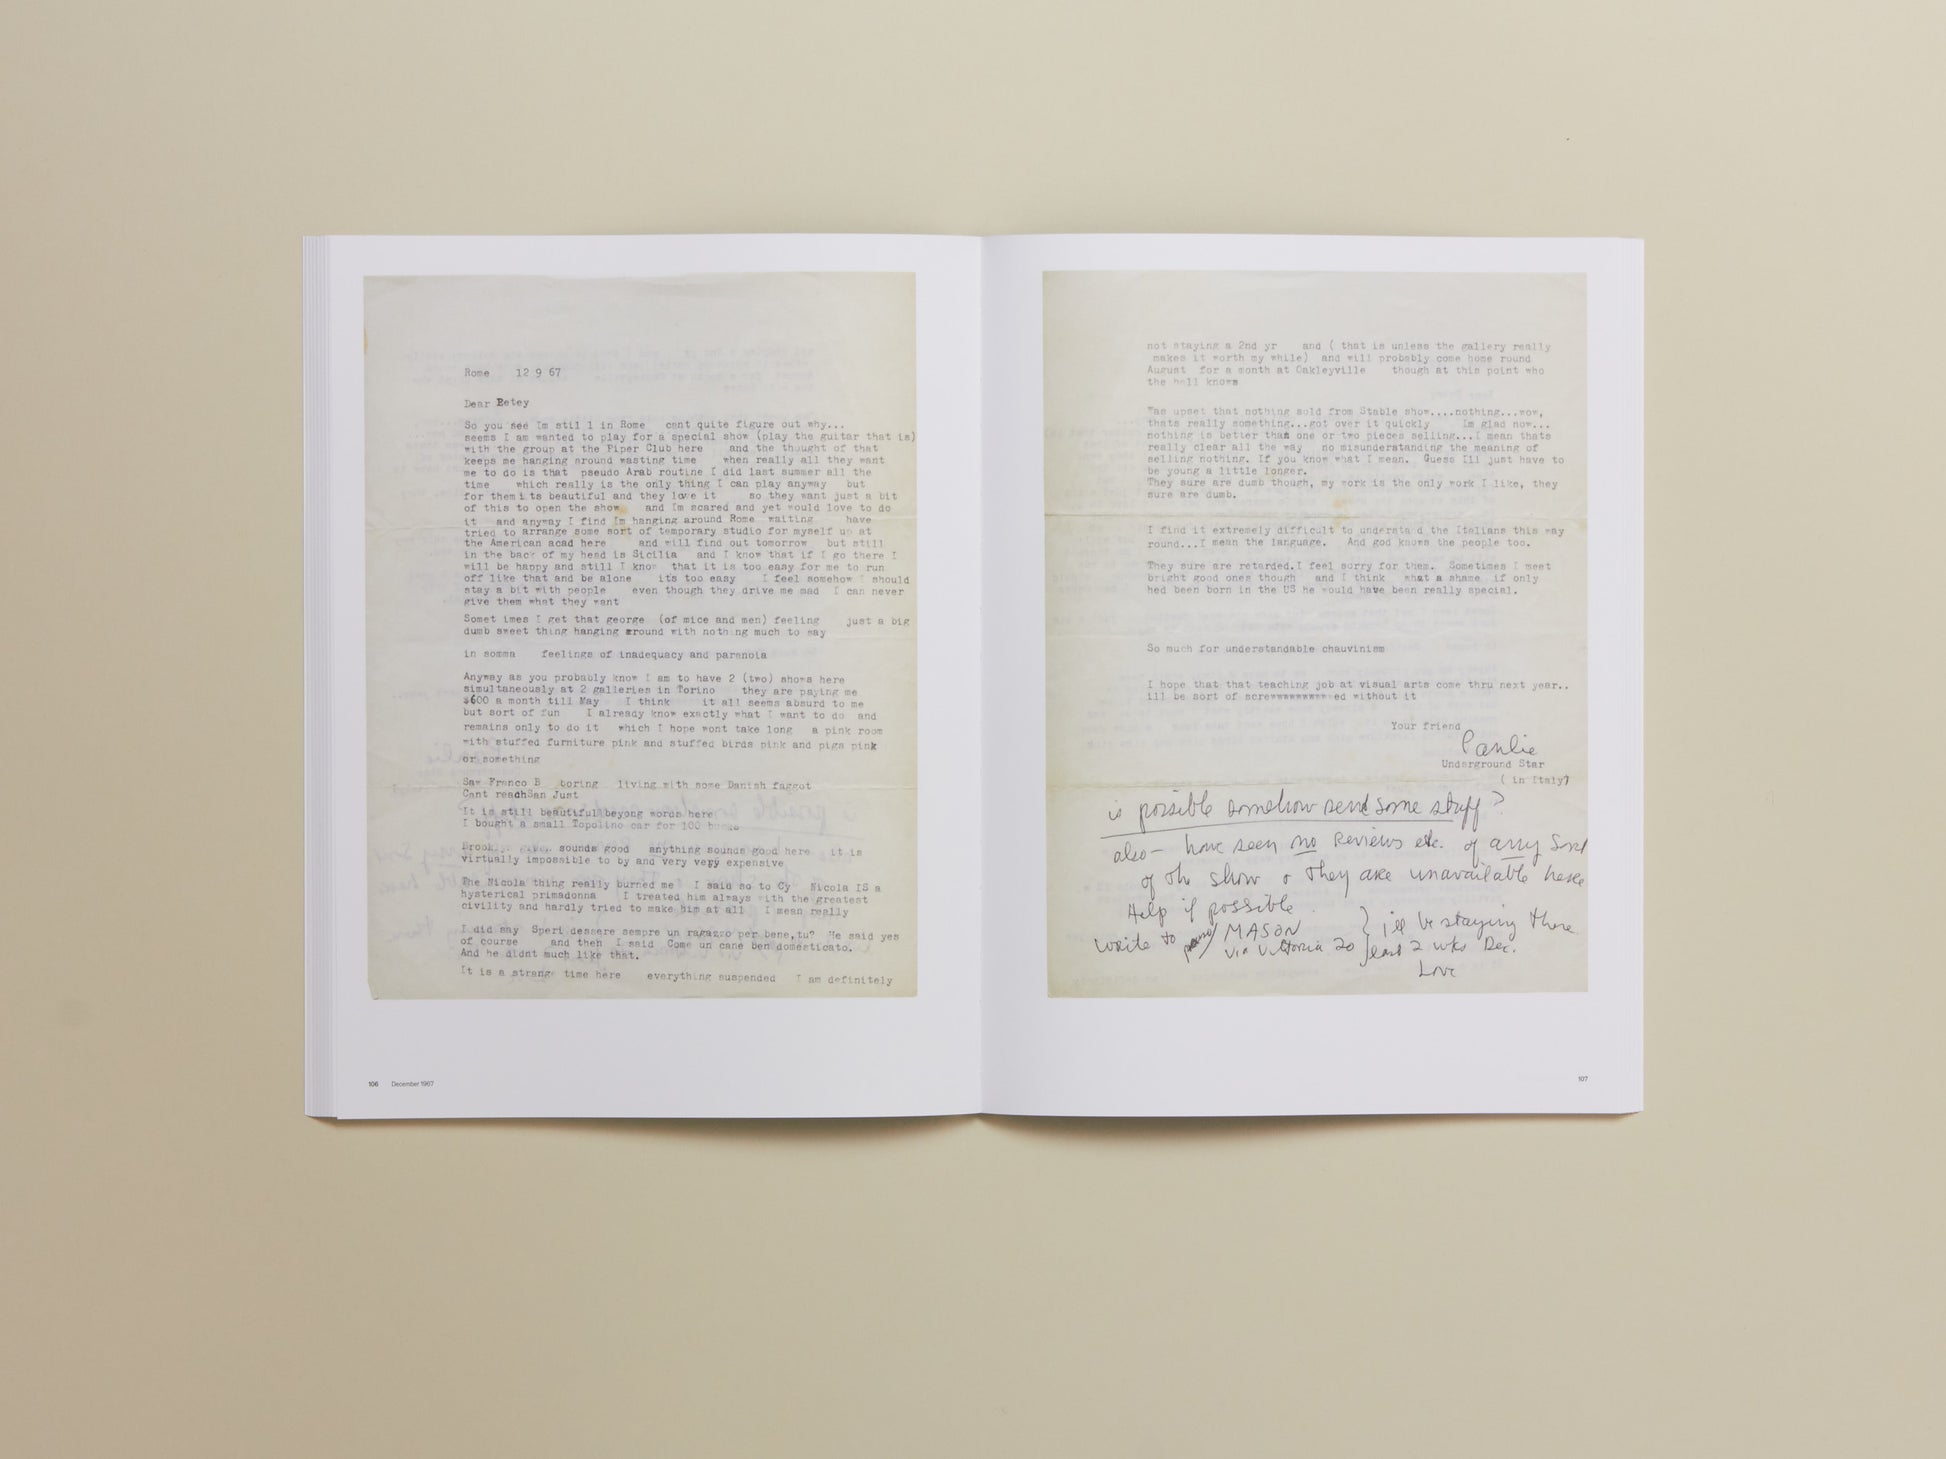 Rome 12 9 67
Dear Petey
So you see Im stil l in Rome cant quite figure out why...
seems I am wanted to play for a special show (play the guitar that is)
with the group at the Piper Club here and the thought of that
keeps me hanging around wasting time when really all they want
me to do is that pseudo Arab routine I did last summer all the
time which really is the only thing I can play anyway but
for them its beautiful and they love it so they want just a bit
of this to open the show and Im scared and yet would love to do
it and anyway I find Im hanging around Rome waiting have
tried to arrange some sort of temporary studio for myself up at
the American acad here and will find out tomorrow but still
in the back of my head is Sicilia and I know that if I go there I
will be happy and still I know that it is too easy for me to run
off like that and be alone its too easy I feel somehow I should
stay a bit with people even though they drive me mad I can never
give them what they want
Somet imes I get that george (of mice and men) feeling just a big
dumb sweet thing hanging around with nothing much to say
in somma feelings of inadequacy and paranoia
Anyway as you probably know I am to have 2 (two) shows here
simultaneously at 2 galleries in Torino they are paying me
$600 a month till May I think it all seems absurd to me
but sort of fun I already know exactly what I want to do and
remains only to do it which I hope wont take long a pink room
with stuffed furniture pink and stuffed birds pink and pigs pink
or something
Saw Franco B boring living with some Danish faggot
Cant reachSan Just
It is still beautiful beyong words here
I bought a small Topolino car for 100 bucks
sounds good anything sounds good here it is
virtually impossible to by and very very expensive
The Nicola thing really burned me I said so to Cy Nicola IS a
hysterical primadonna I treated him always with the greatest
civility and hardly tried to make him at all I mean really
I did say Speri dessere sempre un ragazzo per bene,tu? He said yes
of course and then I said Come un cane ben domesticato.
And he didnt much like that.
It is a strange time here everything suspended I am definitely
106 December 1967
not staying a 2nd yr and ( that is unless the gallery really
makes it worth my while) and will probably come home round
August for a month at Oakleyville though at this point who
the hell knows
Was upset that nothing sold from Stable show....nothing...wow,
thats really something...got over it quickly Im glad now...
nothing is better than one or two pieces selling...I mean thats
really clear all the way no misunderstanding the meaning of
selling nothing. If you know what I mean. Guess Ill just have to
be young a little longer.
They sure are dumb though, my work is the only work I like, they
sure are dumb.
I find it extremely difficult to understa d the Italians this way
round...I mean the language. And god knows the people too.
They sure are retarded.I feel sorry for them. Sometimes I meet
bright good ones though and I think what a shame if only
hed been born in the US he would have been really special.
So much for understandable chauvinism
I hope that that teaching job at visual arts come thru next year..
ill be sort of screwwwwwwwww ed without it
Your friend
Paulie
Underground Star
( in Italy?
is possible somehow send some stuff?
also - have seen no Reviews etc. of any Sort
of the show & they are unavailable here
Help if possible
write to MASON } i'll be staying there
Via Vittoria 20 last 2 wks Dec.
Love
107